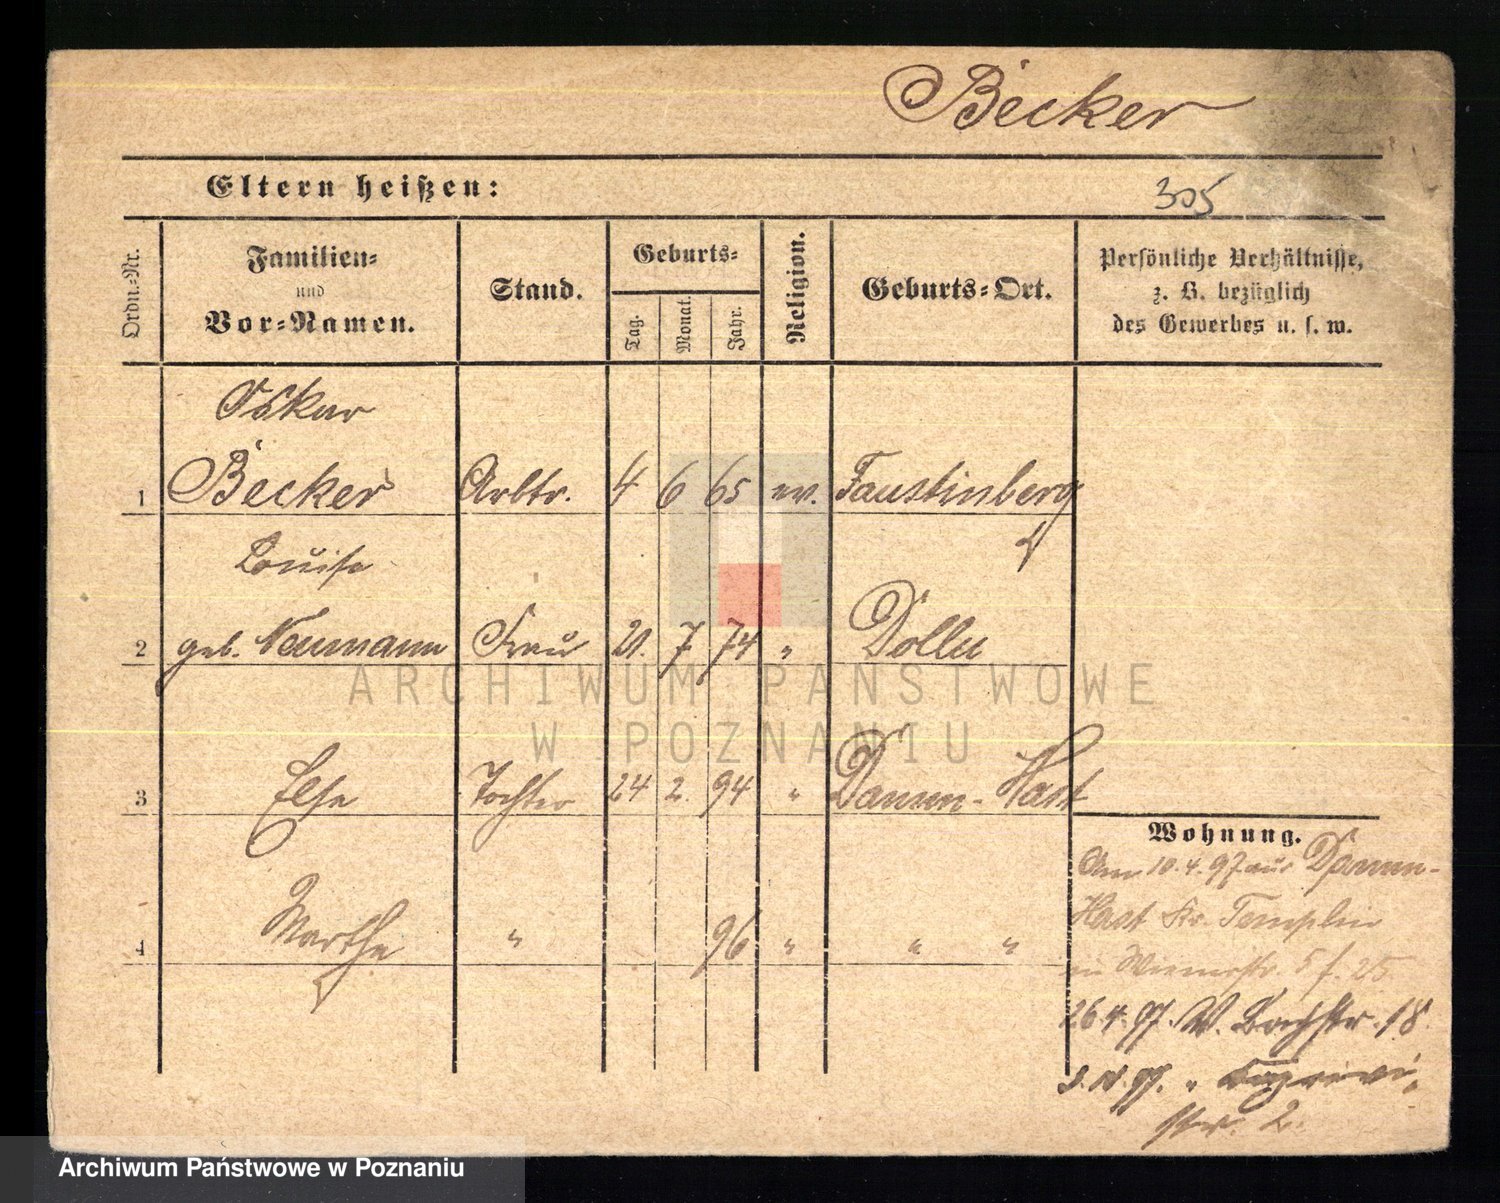 Becker
Eltern heißen:
305
Ordn.-Nr.
Familien-
und
Vor-Namen.
Stand.
Geburts-
Tag.
Monat.
Jahr.
Religion.
Geburts-Ort.
Persönliche Verhältnisse,
z. B. bezüglich
des Gewerbes u. s. w.
Oskar
1 Becker Arbtr. 4 6 65 ev. Faustinberg
Louise
2 geb. Neumann Frau 21. 7 74 "
3 Else Tochter 24 2. 94 " Damm-Hast
Wohnung.
Am 10.4.97 aus Damm-
Hast Kr. Templin
4 Marthe " 96 " " "
26 4. 97. W. Bachstr. 18.
97. " Caprivi-
str. 2.
ARCHIWUM PAŃSTWOWE
W POZNANIU
Archiwum Państwowe w Poznaniu